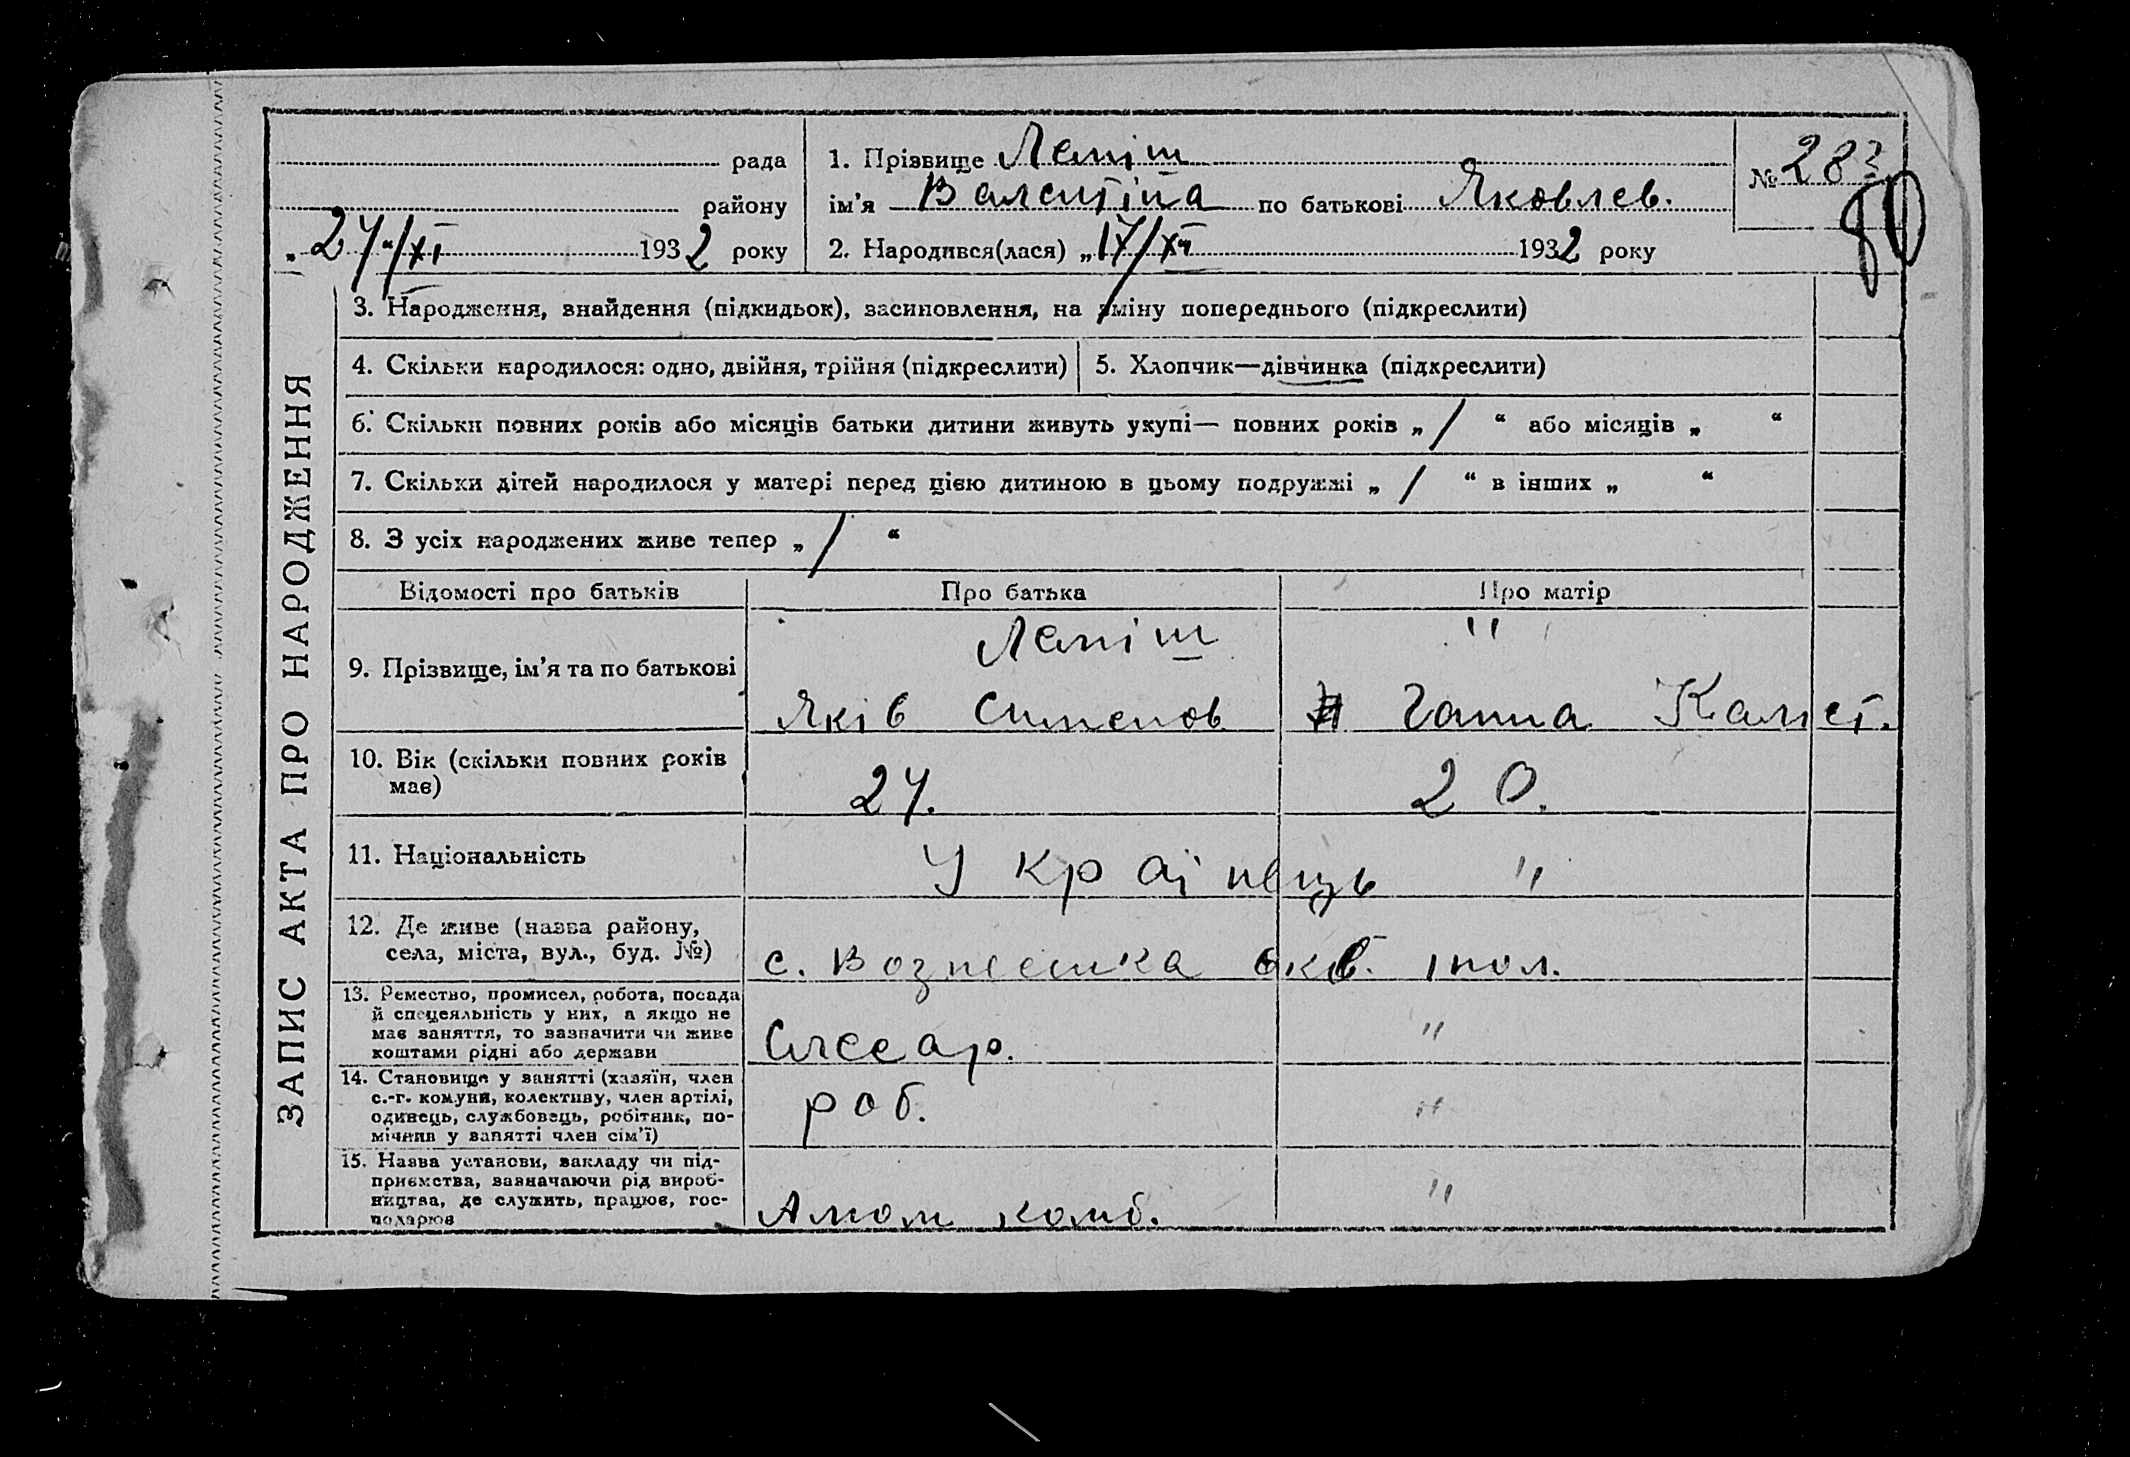 рада
району
„24“/XI 1932 року
1. Прізвище Леміш
ім'я Валентіна по батькові Яковлев.
2. Народився(лася) „17/XI 1932 року
№ 283
80
ЗАПИС АКТА ПРО НАРОДЖЕННЯ
3. Народження, знайдення (підкидьок), засиновлення, на зміну попереднього (підкреслити)
4. Скільки народилося: одно, двійня, трійня (підкреслити)
5. Хлопчик—дівчинка (підкреслити)
6. Скільки повних років або місяців батьки дитини живуть укупі— повних років „ / “ або місяців „ “
7. Скільки дітей народилося у матері перед цією дитиною в цьому подружжі „ / “ в інших „ “
8. З усіх народжених живе тепер „ / “
Відомості про батьків
Про батька
Про матір
9. Прізвище, ім'я та по батькові
Леміш
Яків Сименов
"
Ганна Калист.
10. Вік (скільки повних років
має)
24.
20.
11. Національність
Українець
"
12. Де живе (назва району,
села, міста, вул., буд. №)
с. Вознесенка
13. Ремество, промисел, робота, посада
й спецеяльність у них, а якщо не
має заняття, то зазначити чи живе
коштами рідні або держави
Слесар.
"
14. Становище у занятті (хазяїн, член
с.-г. комуни, колективу, член артілі,
одинець, службовець, робітник, по-
мічник у занятті член сім'ї)
роб.
"
15. Назва установи, закладу чи під-
приємства, зазначаючи рід вироб-
ництва, де служить, працює, гос-
подарює
Алюм комб.
"